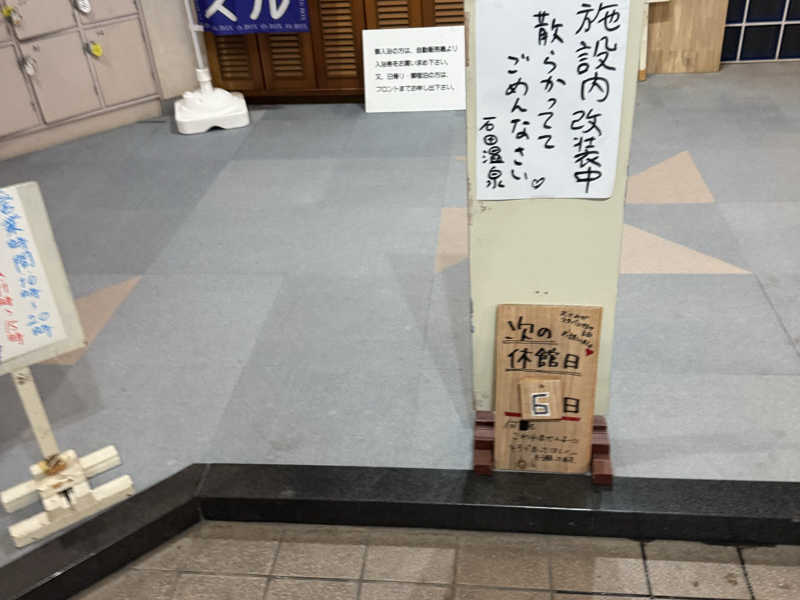 スル
御入浴の方は、自動販売機より
入浴券をお買い求め下さい。
又、日帰り・御宿泊の方は、
フロントまでお申し出下さい。
施設内改装中
散らかってて
ごめんなさい♡
石田温泉
営業時間 10時~20時
15時
次の
休館日
6日